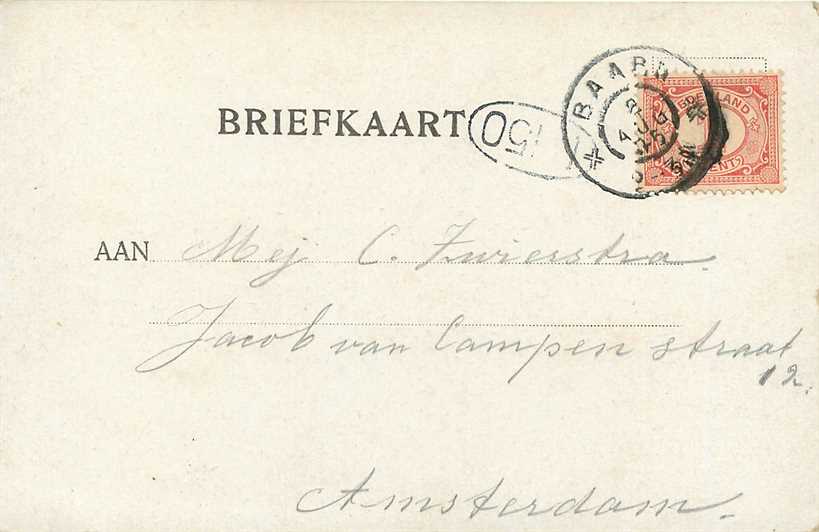 BRIEFKAART
150
BAARN
NEDERLAND
CENT
AAN Mej C. Zwierstra
Jacob van Campen straat
12.
Amsterdam.